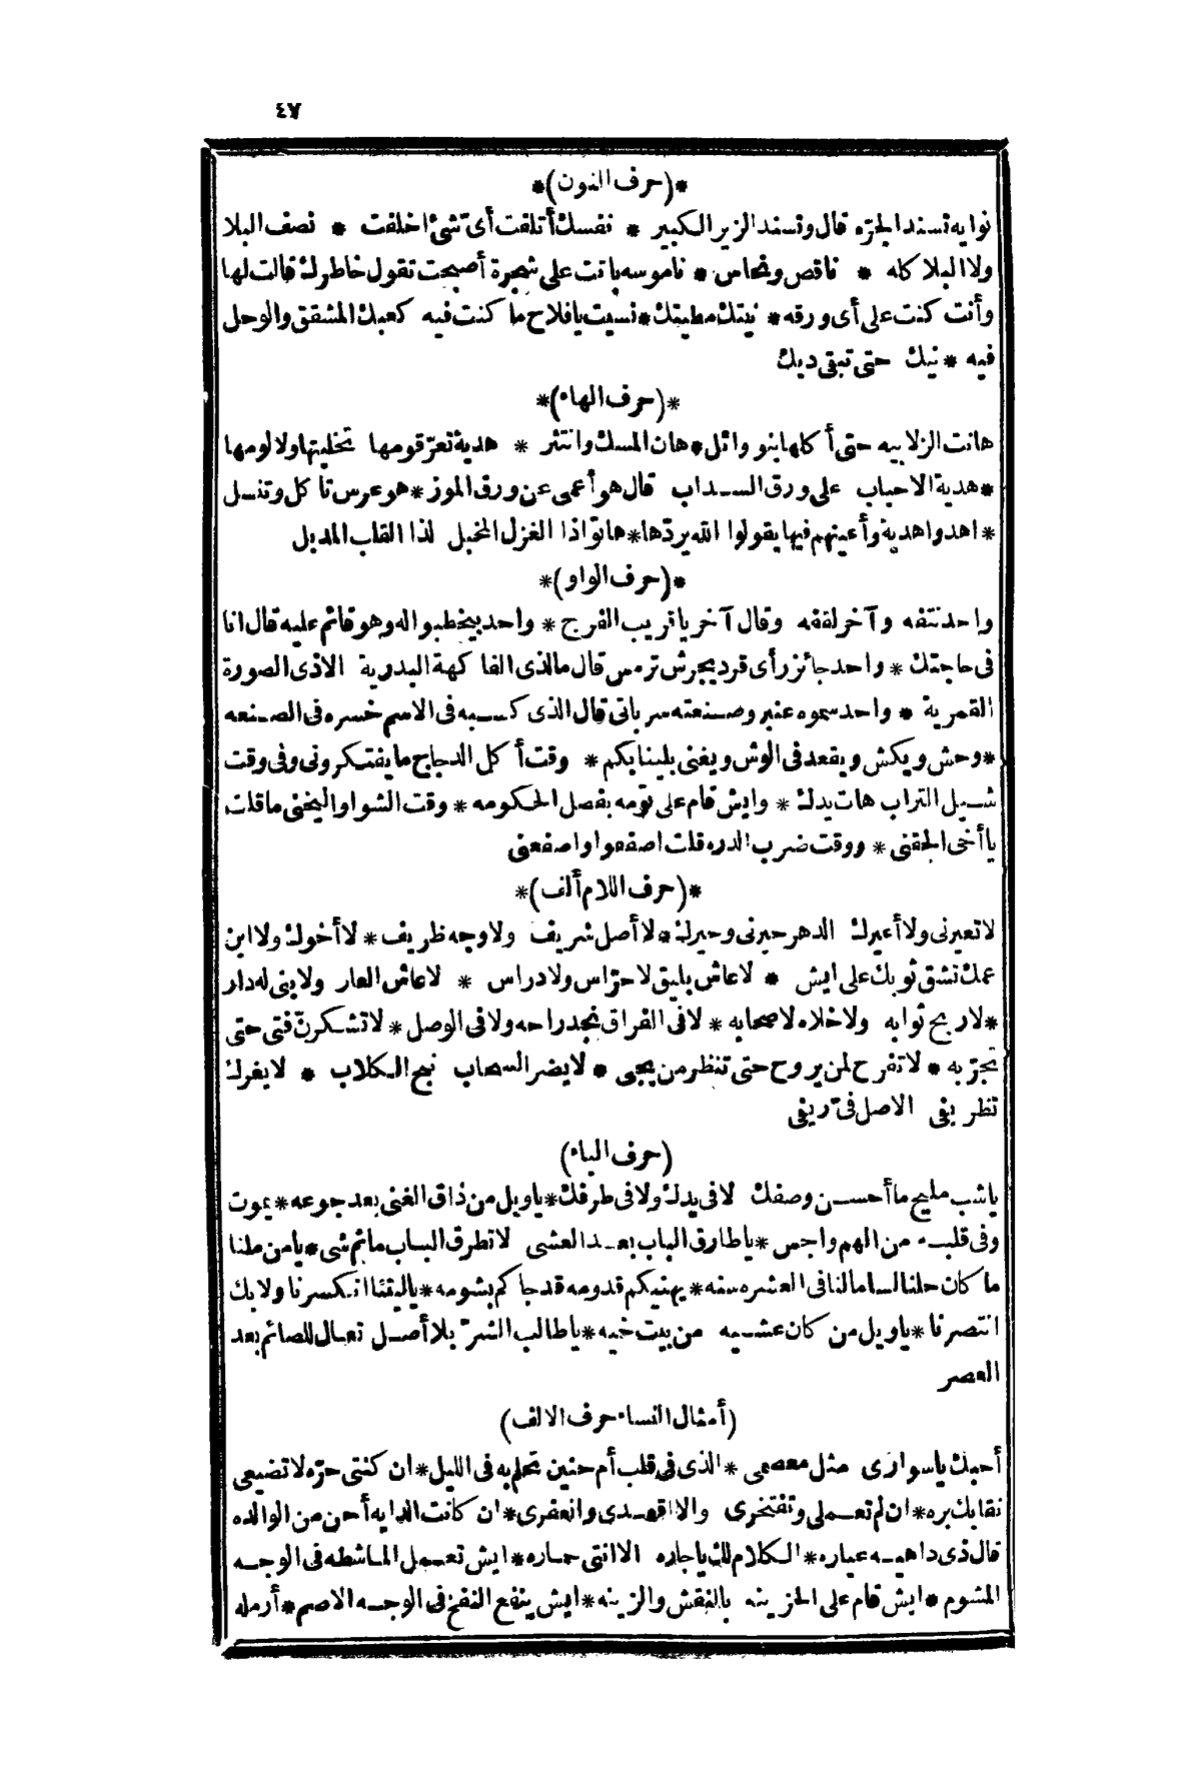 ٤٧
*(حرف النون)*
نوايه تسند الجرّه قال وتسند الزير الكبير * نفسك أتلفت أى شئ اخلفت * نصف البلا
ولا البلا كله * ناقص ونحاس * ناموسه باتت على شجرة أصبحت تقول خاطرك قالت لها
وأنت كنت على أى ورقه * نيتك مطيتك * نسيت يا فلاح ما كنت فيه كعبك المشقق والوحل
فيه * نيك حتى تبقى ديك
*(حرف الهاء)*
هانت الزلابيه حتى أكلها بنو وائل * هان المسك وانتثر * هدية تعرّ قومها تخليتها ولا لومها
* هدية الاحباب على ورق السداب قال هو أعمى عن ورق الموز * هو عرس تاكل وتنسل
* اهدوا هدية وأعينهم فيها يقولوا الله يردّها * هاتوا اذا الغزل المخبل لذا القلب المدبل
*(حرف الواو)*
واحد نتفه وآخر لقفه وقال آخر يا قريب الفرج * واحد بيخطبوا له وهو قائم عليه قال انا
فى حاجتك * واحد جائز رأى قرد يجرش ترمس قال مالذى الفاكهة البدرية الا ذى الصورة
القمرية * واحد سموه عنبر وصنعته سرباتى قال الذى كسبه فى الاسم خسره فى الصنعه
* وحش ويكش ويقعد فى الوش ويغنى بلينا بكم * وقت أكل الدجاج ما يفتكرونى وفى وقت
شيل التراب هات يدك * وايش قام على تومه يفصل الحكومه * وقت الشوا واليخنى ما قلت
يا أخى الحقنى * ووقت ضرب الدره قلت اصفعوا واصفعنى
*(حرف اللام ألف)*
لا تعيرنى ولا أعيرك الدهر حيرنى وحيرك * لا أصل شريف ولا وجه ظريف * لا أخوك ولا ابن
عمك تشق ثوبك على ايش * لا عاش بليق لا حرّاس ولا دراس * لا عاش العار ولا بنى له دار
* لا ربح ثوابه ولا خلاه لاصحابه * لا فى الفراق نجد راحه ولا فى الوصل * لا تشكرنّ فتى حتى
تجرّبه * لا تفرح لمن يروح حتى تنظر من يجى * لا يضر السحاب نبح الكلاب * لا يغرك
تظريفى الاصل فىّ ريفى
(حرف الياء)
يا شب مليح ما أحسن وصفك لا فى يدك ولا فى طرفك * يا ويل من ذاق الغنى بعد جوعه * يموت
وفى قلبه من الهم واجس * يا طارق الباب بعد العشى لا تطرق الباب ما ثم شى * يا من ملنا
ما كان حلنا لسا مالنا فى العشره سنه * يهنيكم قدومه قد جاكم بشومه * يا ليتنا انكسرنا ولا بك
انتصرنا * يا ويل من كان عشيه من بيت خيه * يا طالب الشرّ بلا أصل تعال للصائم بعد
العصر
(أمثال النساء حرف الالف)
أحبك يا سوارى مثل معصمى * الذى فى قلب أم حنين تحلم به فى الليل * ان كنتى حرّه لا تضيعى
نقابك بره * ان لم تعملى وتفتخرى والا اقعدى وانعفرى * ان كانت الدايه أحن من الوالده
قال ذى داهيه عياره * الكلام لك يا جاره الا انتى حماره * ايش تعمل الماشطه فى الوجه
المشوم * ايش قام على الخزينه بالنقش والزينه * ايش ينفع النفخ فى الوجه الاصم * أرمله